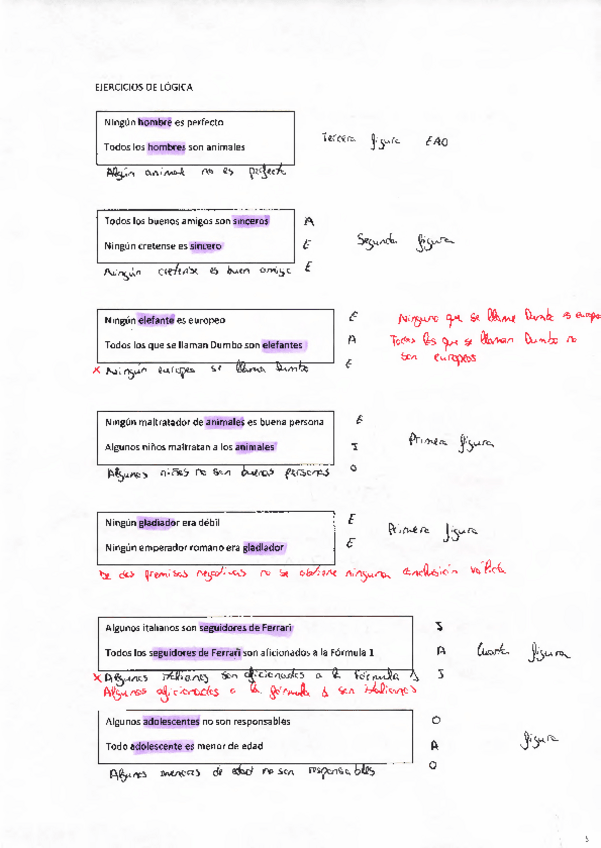 EJERCICIOS DE LÓGICA
Ningún hombre es perfecto
Todos los hombres son animales
Tercera figura EAO
Algún animal no es perfecto
Todos los buenos amigos son sinceros A
Ningún cretense es sincero E
Segunda figura
Ningún cretense es buen amigo E
Ningún elefante es europeo E
Ninguno que se llame Dumbo es europeo
Todos los que se llaman Dumbo son elefantes A
Todos los que se llaman Dumbo no
son europeos
x Ningún europeo se llama Dumbo E
Ningún maltratador de animales es buena persona E
Algunos niños maltratan a los animales I
Primera figura
Algunos niños no son buenas personas O
Ningún gladiador era débil E
Ningún emperador romano era gladiador E
Primera figura
De dos premisas negativas no se obtiene ninguna conclusión válida
Algunos italianos son seguidores de Ferrari I
Todos los seguidores de Ferrari son aficionados a la Fórmula 1 A
Cuarta figura
x Algunos italianos son aficionados a la fórmula 1 I
Algunos aficionados a la fórmula 1 son italianos
Algunos adolescentes no son responsables O
Todo adolescente es menor de edad A
figura
Algunos menores de edad no son responsables O